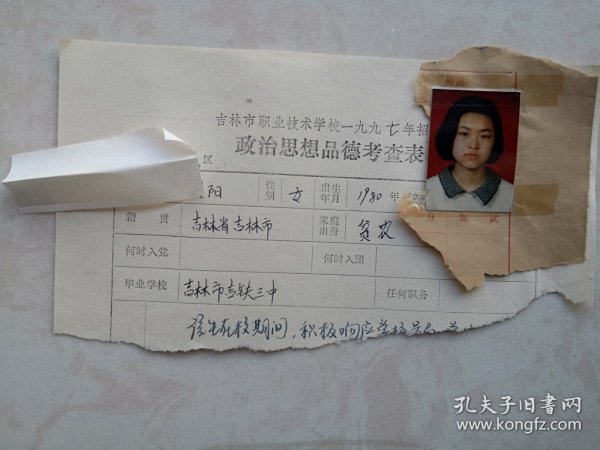 吉林市职业技术学校一九九七年招
政治思想品德考查表
区
阳 性别 女 出生年月 1980 年
籍贯 吉林省吉林市 家庭出身 贫农
何时入党 何时入团
毕业学校 吉林市吉铁三中 任何职务
该生在校期间，积极响应学校
孔夫子旧书网
www.kongfz.com